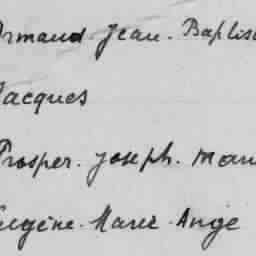 Armand Jean. Baptis
Jacques
Prosper. Joseph. Mari
Eugène. Marie. Ange